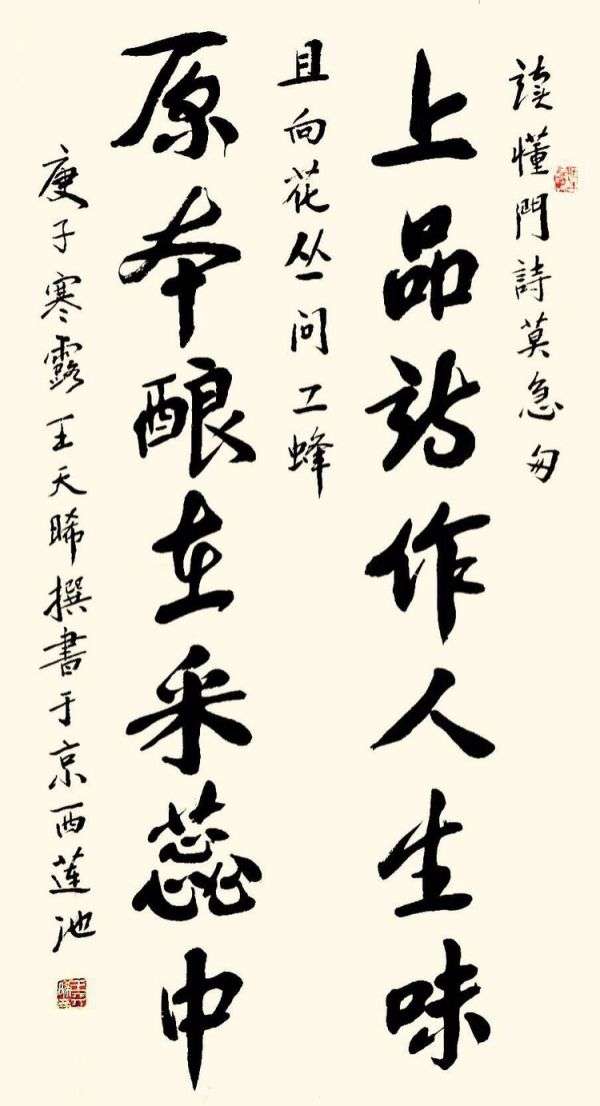 读懂門詩莫急匆
上品詩作人生味
且向花丛问工蜂
原本酿在采蕊中
庚子寒露王天晞撰書于京西莲池